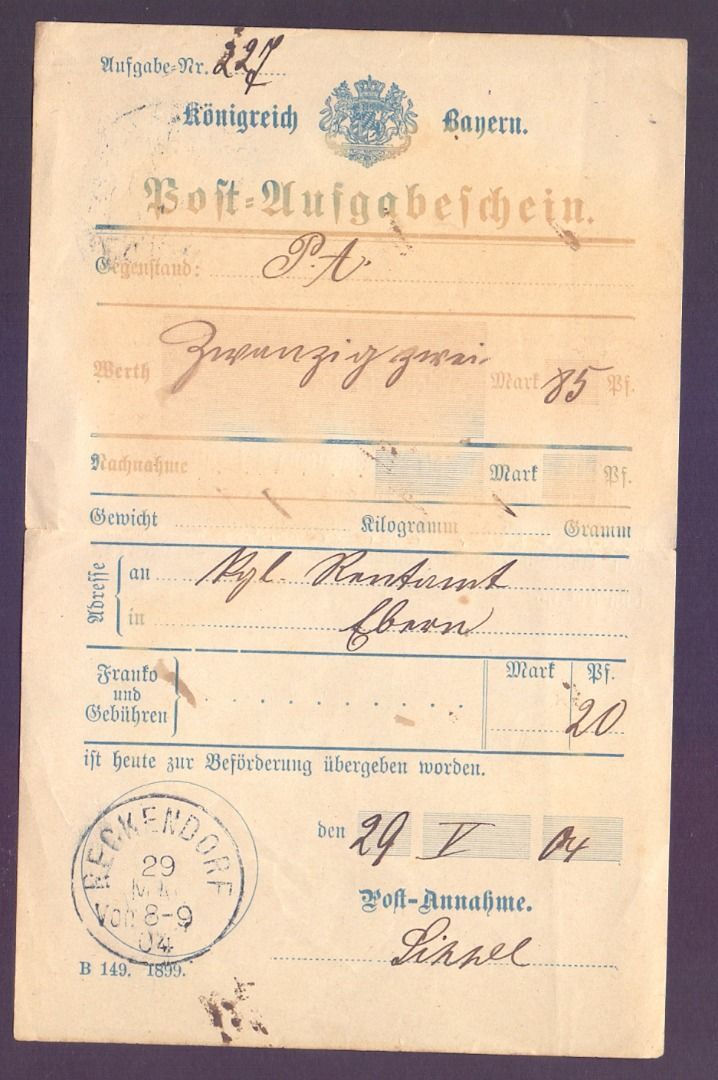 Aufgabe-Nr. 227
Königreich Bayern.
Post-Aufgabeschein.
Gegenstand: P.A.
Werth Zwanzig zwei Mark 85 Pf.
Nachnahme Mark Pf.
Gewicht Kilogramm Gramm
Adresse
an Kgl. Rentamt
in Ebern
Franko und Gebühren
Mark Pf.
20
ist heute zur Beförderung übergeben worden.
RECKENDORF
29
MAI
Vor 8-9
04
den 29 V 04
Post-Annahme.
B 149. 1899.